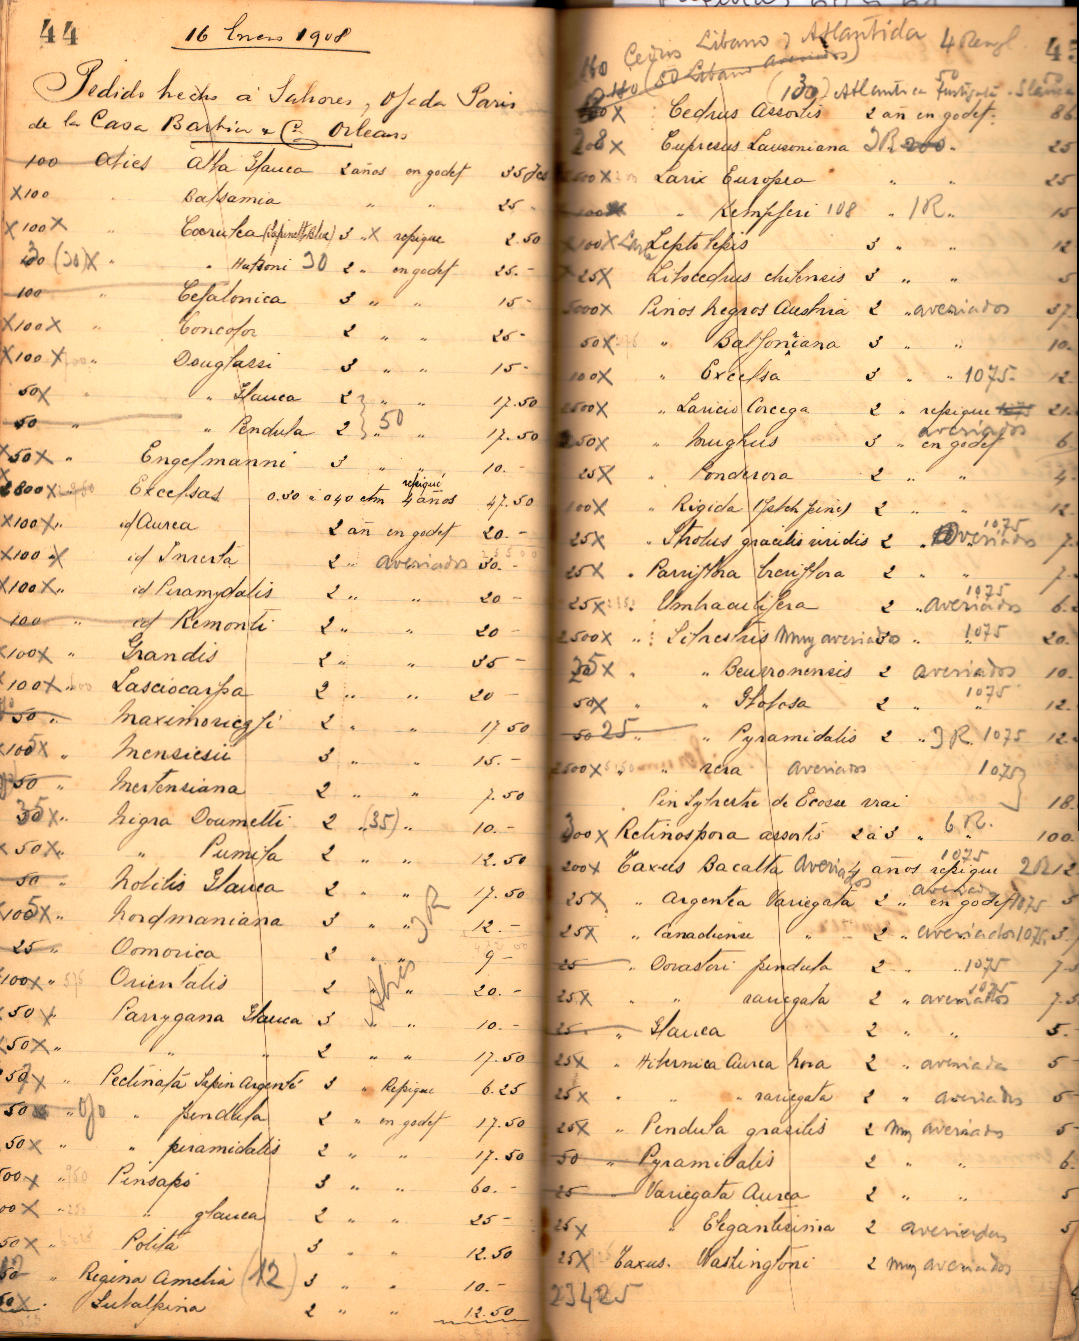 44
16 Enero 1908
Pedido hecho á Sahores, Ojeda Paris
de la Casa Barbier & Cº Orleans
100 Abies Alba Glauca 2 años en godet 35 fcs
X100 Balsamia " " 25 "
X100X " Coerulea 3 " X repique 2.50
(30)X " " Hutsoni 30 2 " en godet 25.-
100 Cefalonica 3 " " 15-
X100X " Concolor 2 " " 25-
X100X " Douglassi 3 " " 15-
50X " Glauca 2 " " 17.50
50 " " Pendula 2 " 50 " 17.50
X50X " Engelmanni 3 " " 10.-
2800X Excelsas 0.30 á 040 ctm repiqué 4 años 47.50
X100X " id Aurea 2 añ en godet 20.-
X100X id Inverta 2 " averiados 30.-
X100X " id Piramydalis 2 " " 20-
100 " id Remonti 2 " " 20-
X100X " Grandis 2 " " 35-
X100X " Lasciocarpa 2 " " 20-
50 " Maximoviczji 2 " " 17 50
X1005X " Mensiesii 3 " " 15.-
50 " Mertensiana 2 " " 7.50
35X " Nigra Doumetti 2 " (35) " 10.-
X50X " " Pumila 2 " " 12.50
50 " Nobilis Glauca 2 " " 17.50
X1005X " Nordmaniana 3 " " 12.-
25 " Oomorica 2 " " 9-
100X " Orientalis 2 " " 20.-
3R
Abies
X50X " Parrygana Glauca 3 " " 10.-
X50X " " " 2 " " 17.50
50X " Pectinata Sapin Argenté 3 " Repique 6.25
50 " ojo " pendula 2 " en godet 17.50
50X " " piramidalis 2 " " 17.50
00X " Pinsapo 3 " " 60.-
00X " " glauca 2 " " 25-
50X " Polita 3 " " 12.50
50 " Regina Amelia (12) 3 " " 10.-
50X. " Subalpina 2 " " 12.50
Cedrus Libano y Atlantida 4 Rengl. 45
160
110 (50 Libano averiados)
(130) Atlantica 50 fustigata - Glauca 50
X Cedrus Assortis 2 añ en godet. 86
208X Cupresus Lausoniana 3R 200. 25
500X Larix Europea " " 25
100X " Kempferi 108 " 1R " 15
X100X Larix Leptolepis 3 " " 12
25X Libocedrus chilensis 3 " " 5
5000X Pinos Negros Austria 2 " averiados 37.
50X " Balfouriana 3 " " 10.
100X " Excelsa 3 " " 1075- 12.
2500X " Laricio Corcega 2 " repique 21.
averiados
250X " Mughus 3 " en godet 6.
25X " Ponderosa 2 " " 4.
100X " Rigida (pitch pine) 2 " " 12.
1075
25X " Strobus gracilis viridis 2 " averiados 7.
25X " Parviflora breviflora 2 " " 7.
1075
25X " Umbraculifera 2 " averiados 6.
2500X " Silvestris Muy averiados " 1075 20.
25X " " Beuvronensis 2 averiados 10.
1075
50X " " Globosa 2 " " 12.
50 25 " " Pyramidalis 2 " 3R. 1075 12.
2500X " " vera averiados 1075
Pin Sylvestre de Ecosse vrai 18.
6R.
300X Retinospora assortis 2 á 3 " " 100.
1075
200X Taxus Bacatta averiados 4 años repique 2R 12.
averiados
25X " Argentea Variegata 2 " en godet 1075 5
25X " Canadiense " 2 " averiados 1075 3.
25 " Dovastori pendula 2 " " 1075 7.5
1075
25X " " variegata 2 " averiados 7.5
25 " Glauca 2 " " 5.-
25X " Hibernica Aurea Nova 2 " averiada 5-
25X " " " variegata 2 " averiados 5-
25X " Pendula grasilis 2 muy averiados 5-
50 " Pyramidalis 2 " " 6.
25 " Variegata Aurea 2 " " 5
25X " Elegantisima 2 averiados 5
25X Taxus. Vashingtoni 2 muy averiados
23425